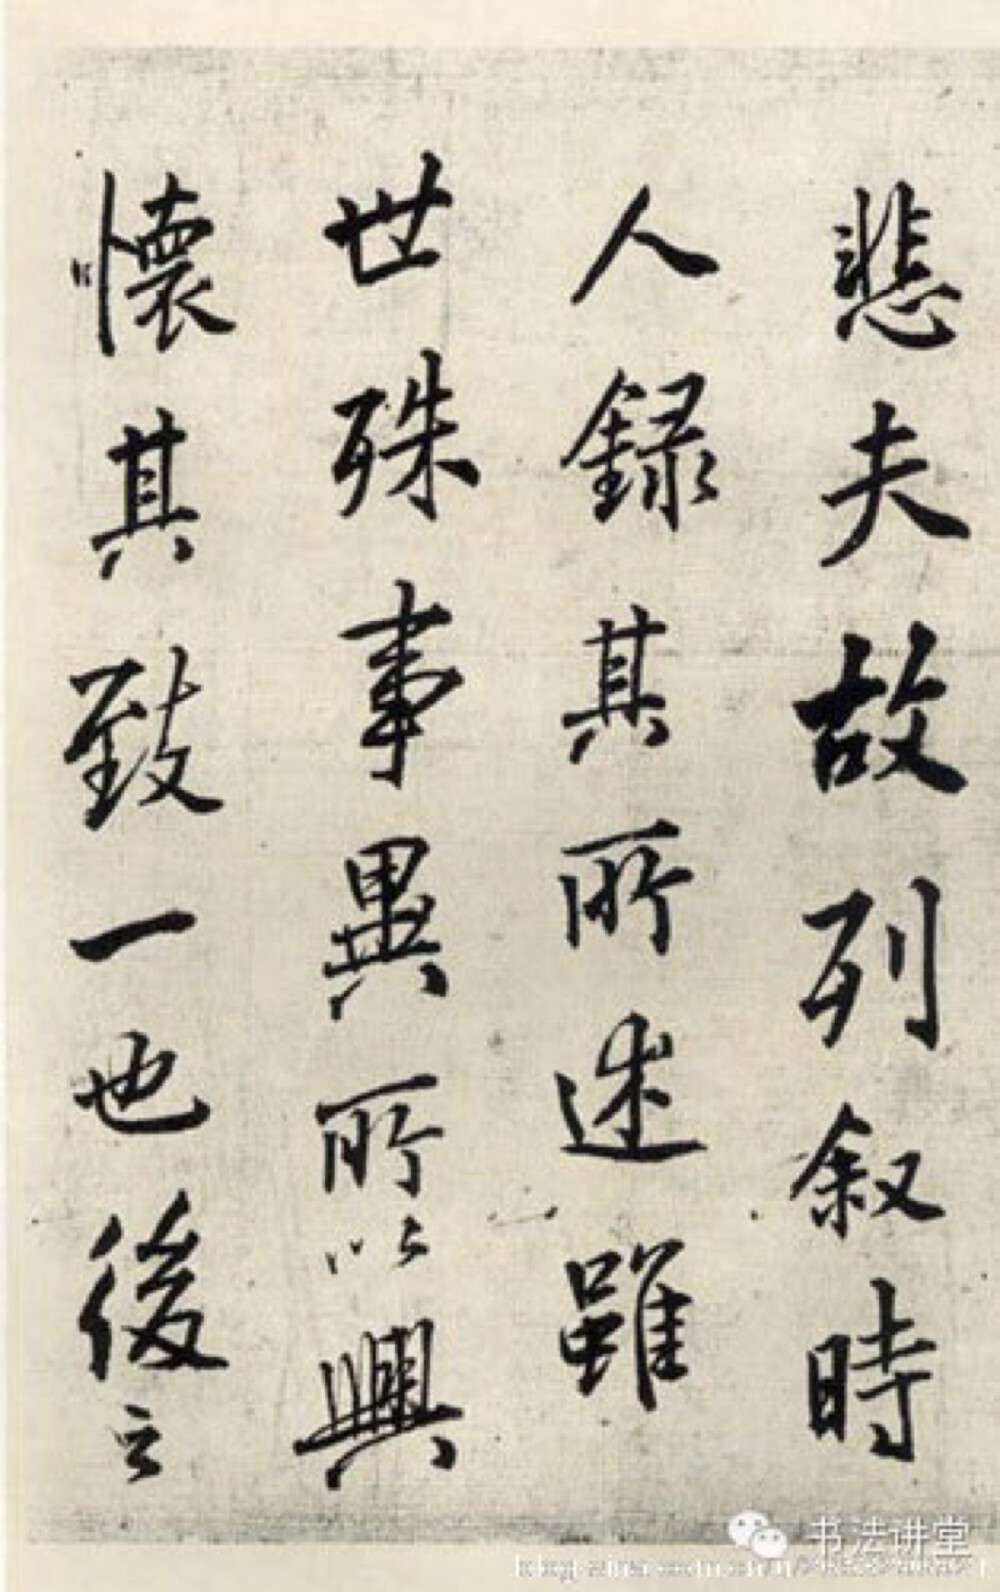 悲夫故列叙時
人録其所述雖
世殊事異所以興
懷其致一也後之
书法讲堂